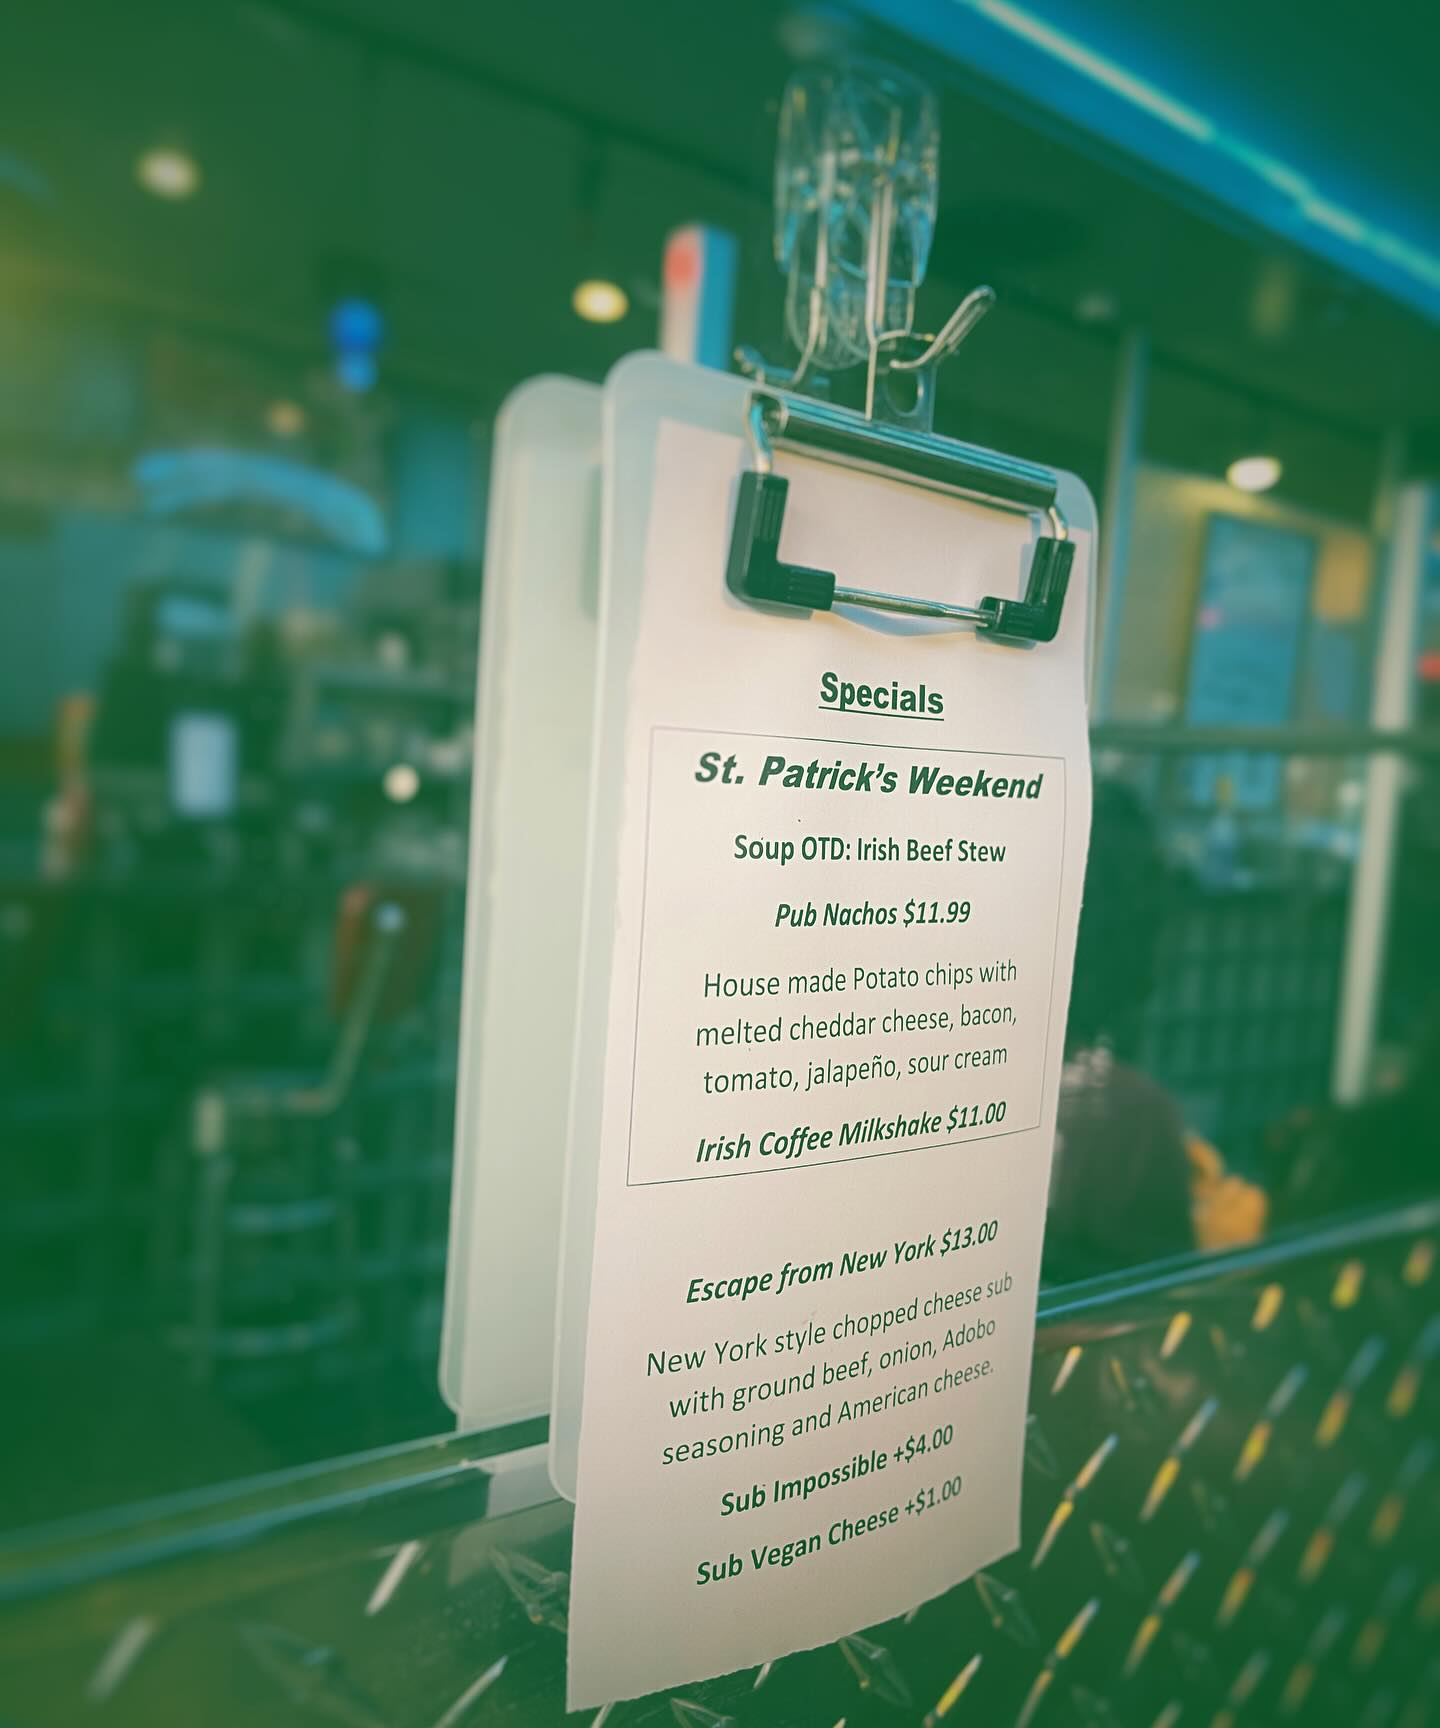 Specials
St. Patrick's Weekend
Soup OTD: Irish Beef Stew
Pub Nachos $11.99
House made Potato chips with
melted cheddar cheese, bacon,
tomato, jalapeño, sour cream
Irish Coffee Milkshake $11.00
Escape from New York $13.00
New York style chopped cheese sub
with ground beef, onion, Adobo
seasoning and American cheese.
Sub Impossible +$4.00
Sub Vegan Cheese +$1.00